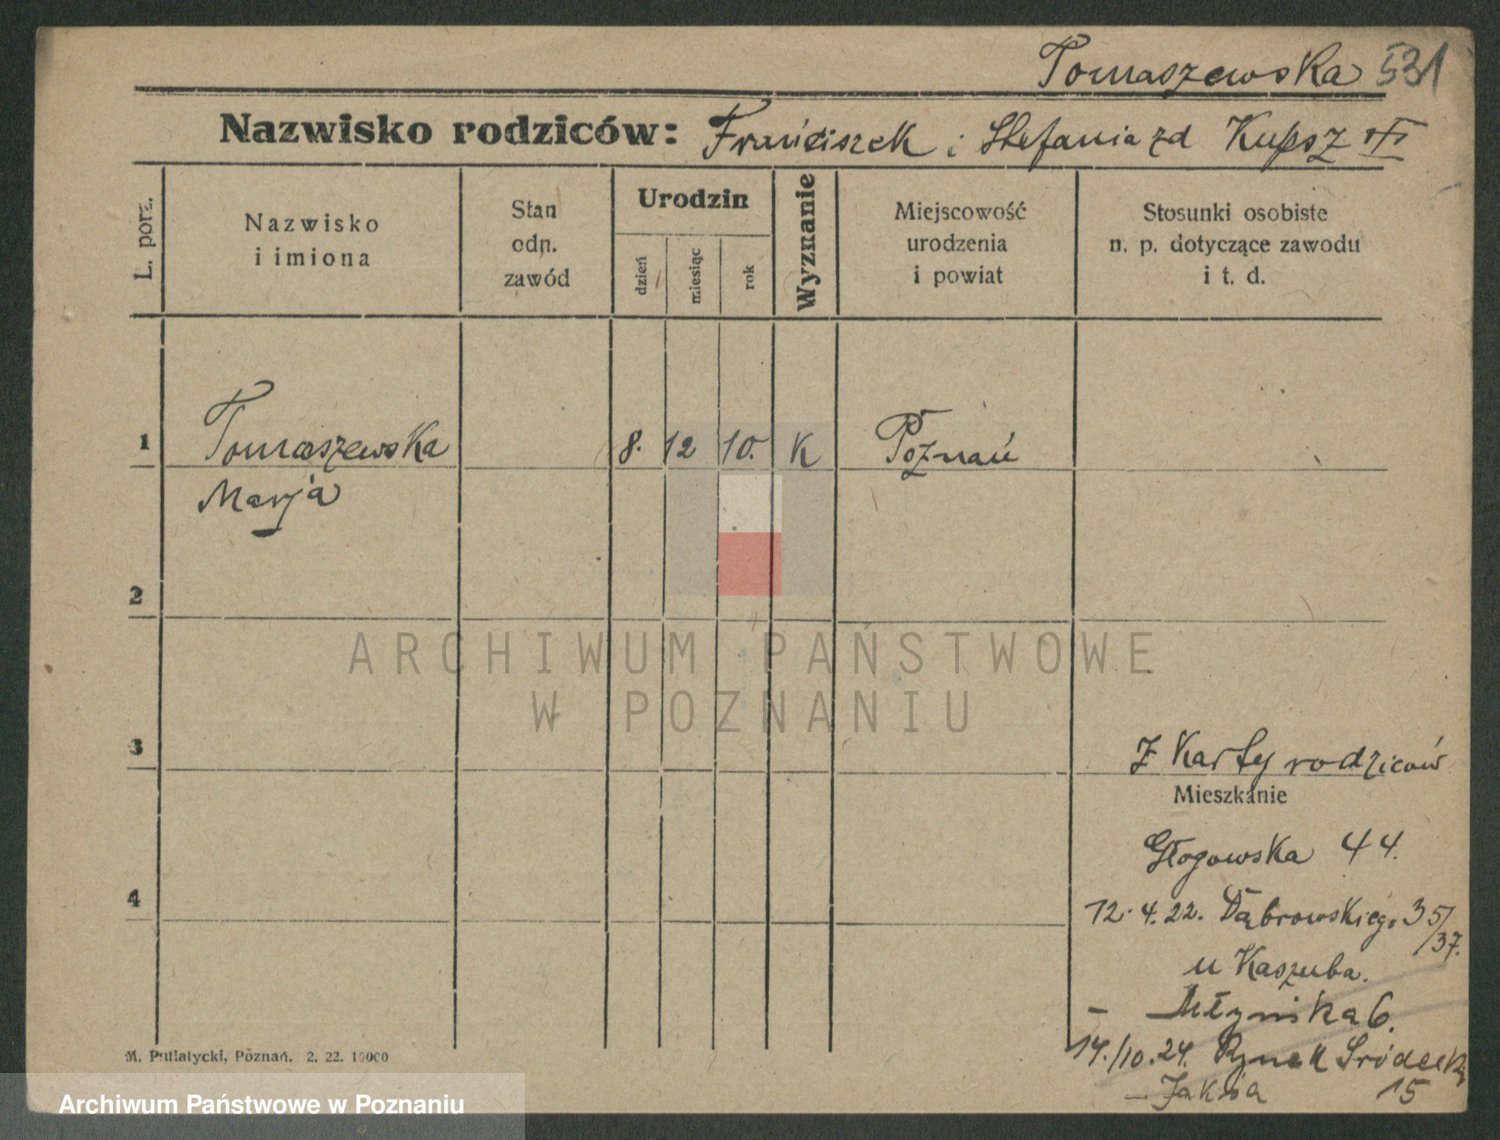 Tomaszewska 531
Nazwisko rodziców: Franciszek i Stefania zd Kupsz
L. porz.
Nazwisko
i imiona
Stan
odn.
zawód
Urodzin
dzień
miesiąc
rok
Wyznanie
Miejscowość
urodzenia
i powiat
Stosunki osobiste
n. p. dotyczące zawodu
i t. d.
1 Tomaszewska 8. 12 10. K Poznań
Marja
2
ARCHIWUM PAŃSTWOWE
W POZNANIU
3
Z Karty rodziców
Mieszkanie
Głogowska 44.
4
12.4.22. Dąbrowskiego 35/37.
u Kaszuba.
— Młyńska 6.
14./10.24. Rynek Śródecki
15
M. Putiatycki, Poznań. 2. 22. 10000
Archiwum Państwowe w Poznaniu